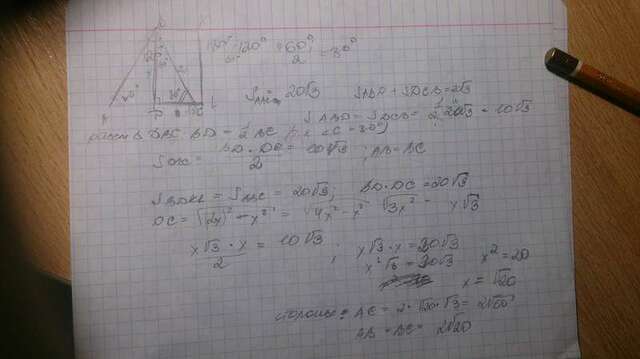 180° - 120° = 60° / 2 = 30°
S ABC = 20√3
S ABD + S DCB = 2√3
S ABD = S DCB = 1/2 · 20√3 = 10√3
рассм Δ DBC BD = 1/2 BC (т.к. <C = 30°)
S DBC = BD · DC / 2 = 10√3 ; AB = BC
S BDKL = S ABC = 20√3; BD · DC = 20√3
DC = √(2x)² - x² = √4x² - x² √3x² = x√3
x√3 · x / 2 = 10√3 ; x√3 · x = 20√3
x²√3 = 20√3
x² = 20
x = √20
стороны: AC = 2 · √20 · √3 = 2√60
AB = BC = 2√20